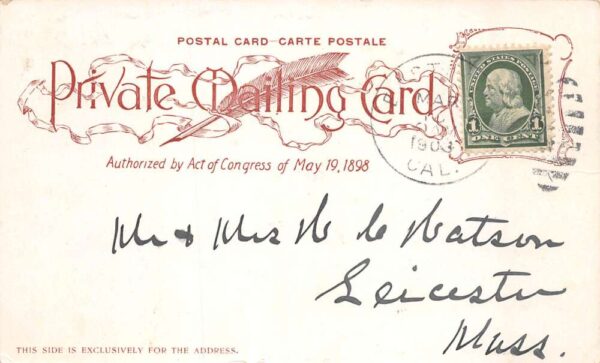 POSTAL CARD-CARTE POSTALE
Private Mailing Card
Authorized by Act of Congress of May 19, 1898
UNITED STATES POSTAGE
1 1
ONE CENT
MAR
1903
CAL.
Mr & Mrs H C Watson
Leicester
Mass.
THIS SIDE IS EXCLUSIVELY FOR THE ADDRESS.